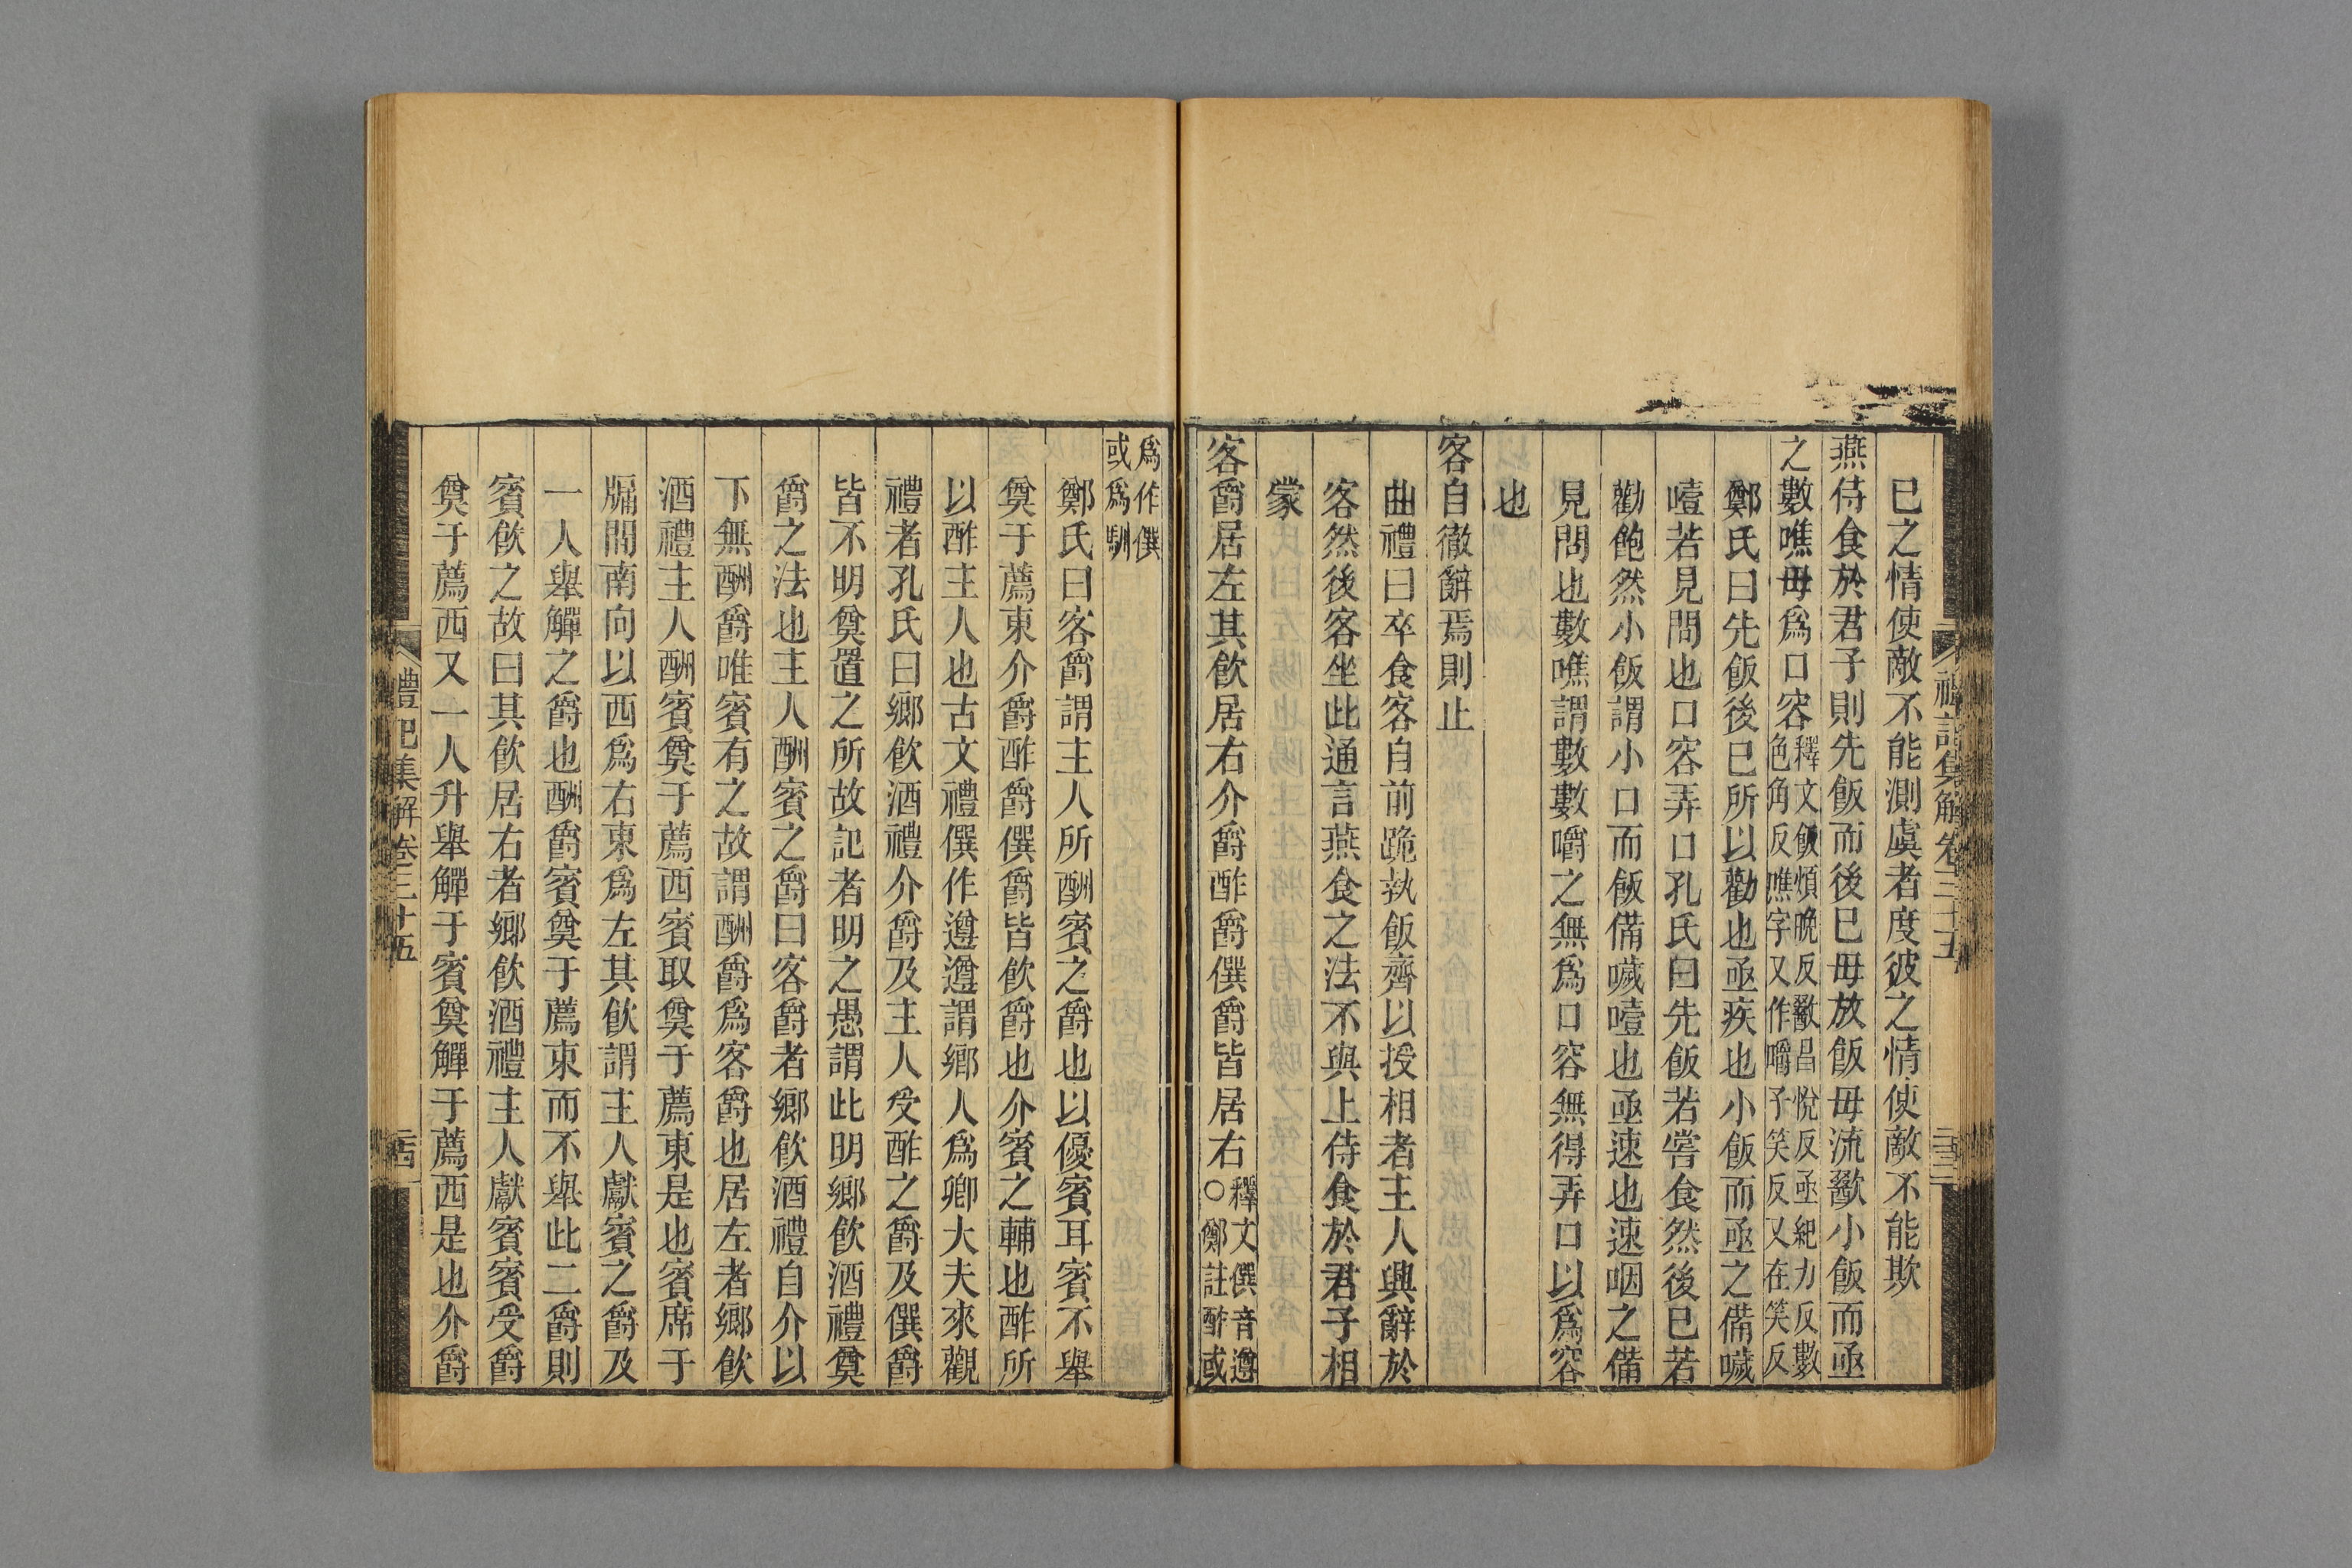 已之情使敵不能測虞者度彼之情使敵不能欺
燕侍食於君子則先飯而後已毋放飯毋流歠小飯而亟
之數噍毋爲口容釋文飯煩晚反歠昌悅反亟紀力反數色角反噍字又作嚼子笑反又在笑反
鄭氏曰先飯後已所以勸也亟疾也小飯而亟之備噦
噎若見問也口容弄口孔氏曰先飯若嘗食然後已若
勸飽然小飯謂小口而飯備噦噎也亟速也速咽之備
見問也數噍謂數數嚼之無爲口容無得弄口以爲容
也
客自徹辭焉則止
曲禮曰卒食客自前跪執飯齊以授相者主人興辭於
客然後客坐此通言燕食之法不與上侍食於君子相
蒙
客爵居左其飲居右介爵酢爵僎爵皆居右釋文僎音遵○鄭註酢或
爲作僎或爲馴
鄭氏曰客爵謂主人所酬賓之爵也以優賓耳賓不舉
奠于薦東介爵酢爵僎爵皆飲爵也介賓之輔也酢所
以酢主人也古文禮僎作遵遵謂鄉人爲卿大夫來觀
禮者孔氏曰鄉飲酒禮介爵及主人受酢之爵及僎爵
皆不明奠置之所故記者明之愚謂此明鄉飲酒禮奠
爵之法也主人酬賓之爵曰客爵者鄉飲酒禮自介以
下無酬爵唯賓有之故謂酬爵爲客爵也居左者鄉飲
酒禮主人酬賓奠于薦西賓取奠于薦東是也賓席于
牖間南向以西爲右東爲左其飲謂主人獻賓之爵及
一人舉觶之爵也酬爵賓奠于薦東而不舉此二爵則
賓飲之故曰其飲居右者鄉飲酒禮主人獻賓賓受爵
奠于薦西又一人升舉觶于賓奠觶于薦西是也介爵
禮記集解卷三十五
禮記集解卷三十五